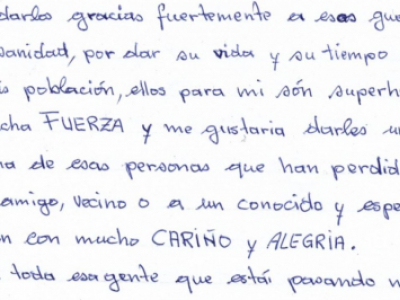 darles gracias fuertemente a esas gue
sanidad, por dar su vida y su tiempo
is población, ellos para mi són superh
cha FUERZA y me gustaria darles un
na de esas personas que han perdid
amigo, vecino o a un conocido y espe
n con mucho CARIÑO y ALEGRIA.
toda esagente que estái pasando m